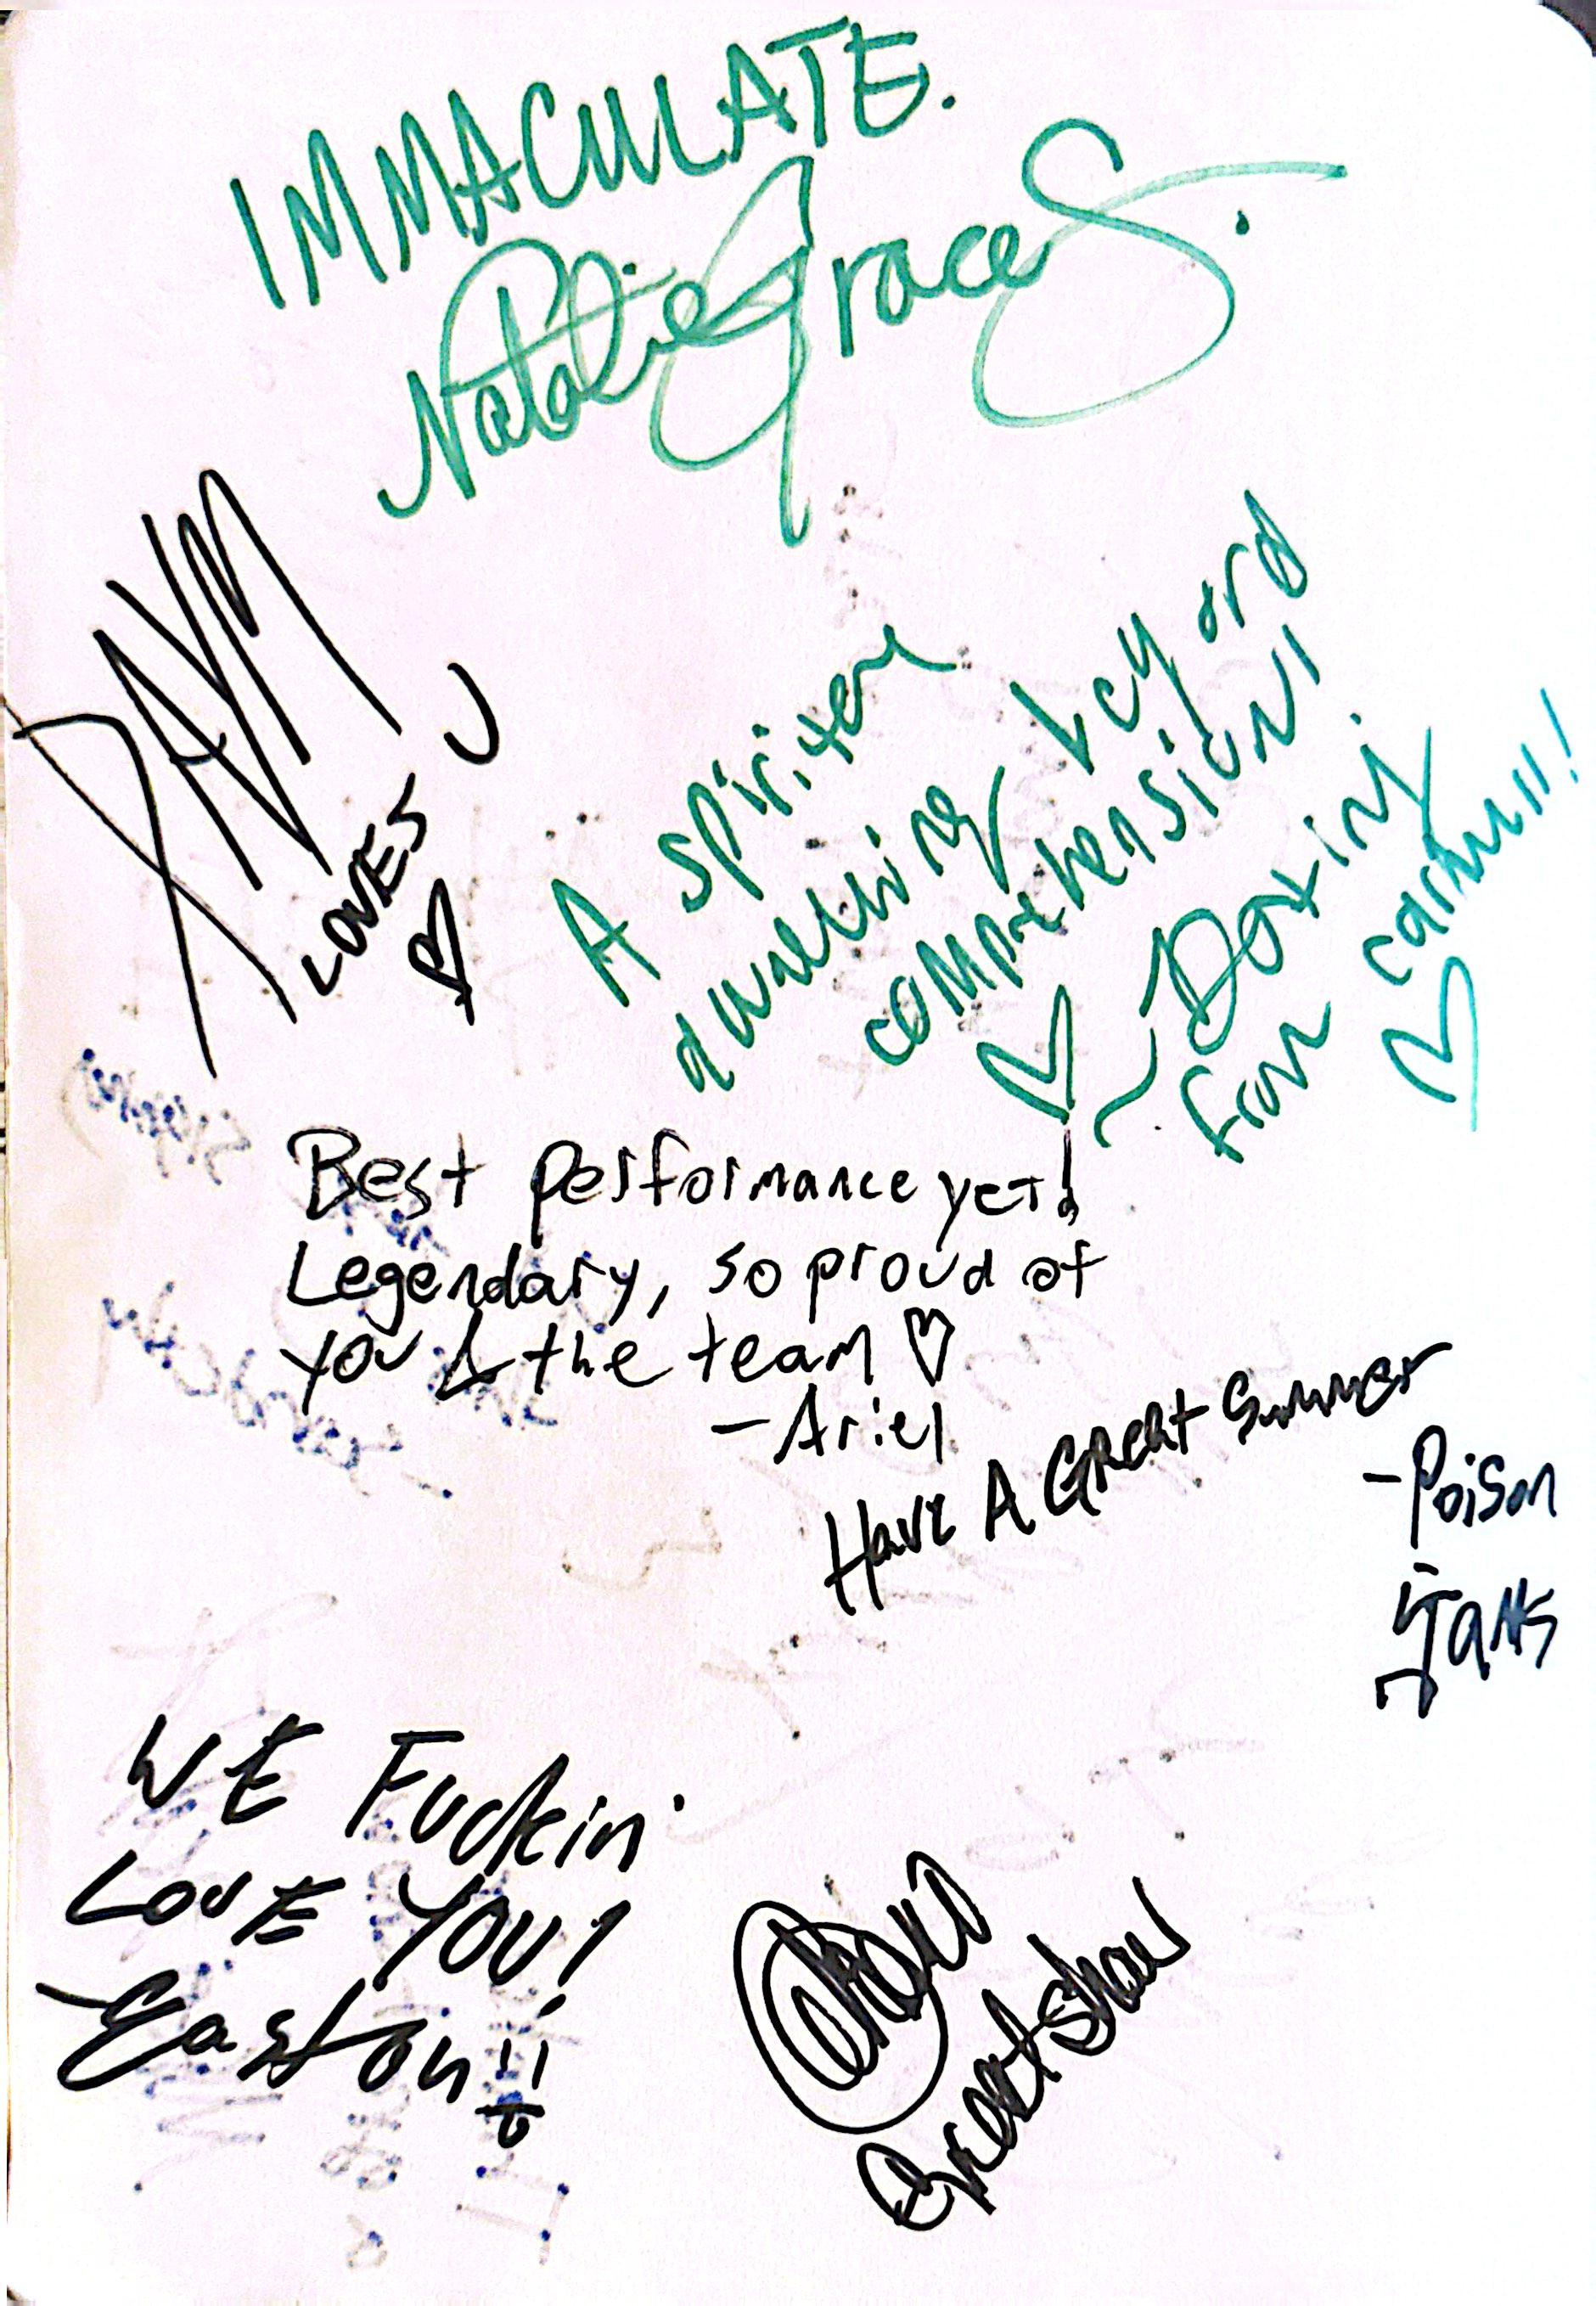 IMMACULATE.
Natalie Grace S.
RAYM
LOVES U
A spirited
dwelling
comprehension!
Best performance yet!
Legendary, so proud of
you & the team
-Ariel
Have A Great Summer
-Poison
WE Fuckin'
LOVE YOU!
-Easton!!
Great show